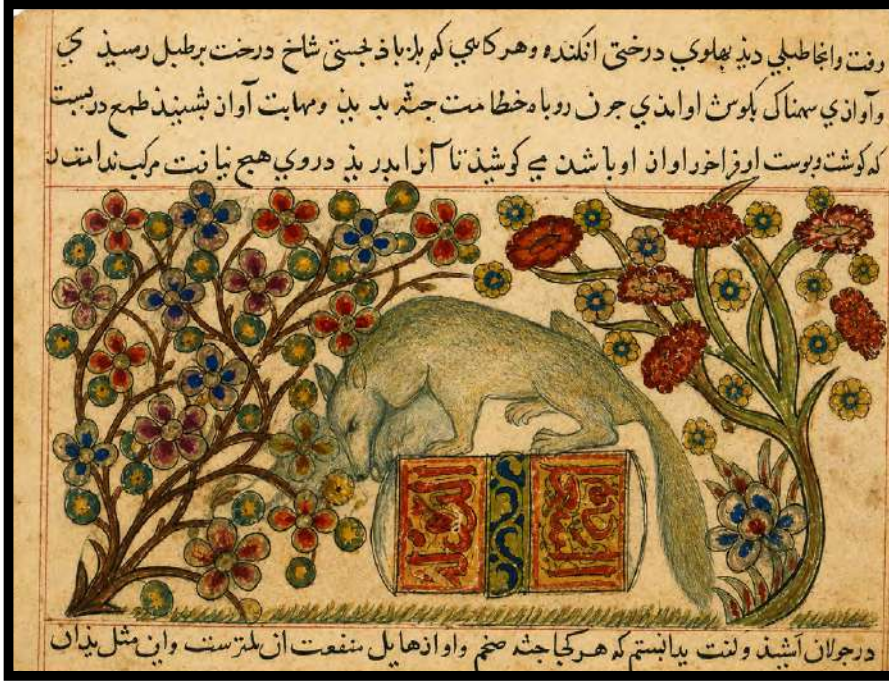 رفت وانجا طبلي ديذ بهلوي درختي افكنده وهر كاهي كه باذ بجستي شاخ درخت بر طبل رسيذ ي
وآوازي سهمناك بكوش او امذي جون روباه ضخامت جثه بديذ ومهابت آواز بشنيذ طمع در بست
كه كوشت وبوست او فراخور اواز او باشذ مي كوشيذ تا آنرا بدريذ در وي هيج نيافت مركب ندامت را
در جولان كشيذ وكفت بدانستم كه هر كجا جثه ضخم واواز هايل منفعت ازو كمترست واين مثل بذان